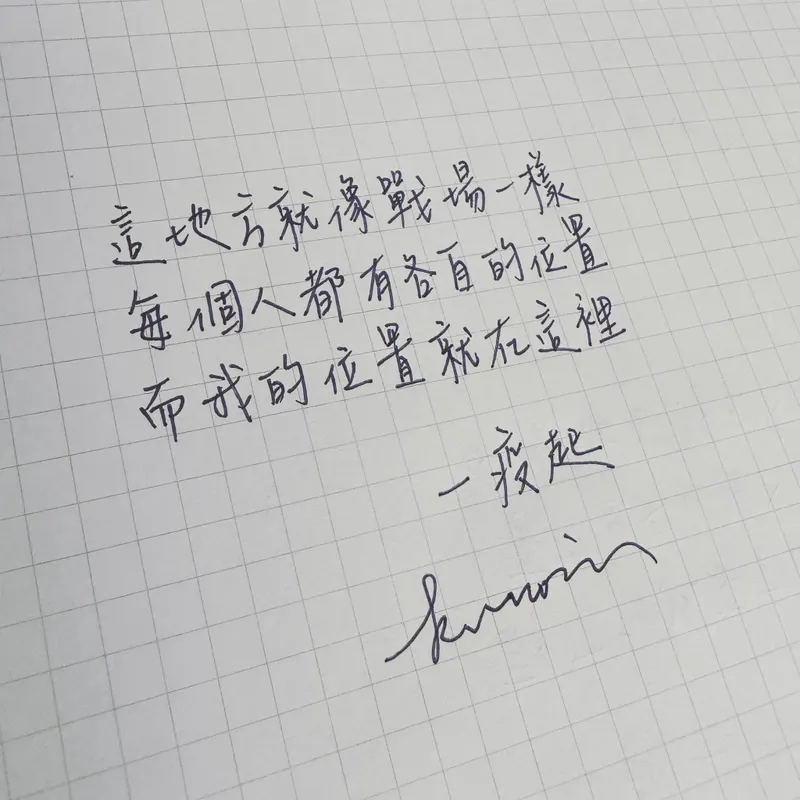 這地方就像戰場一樣
每個人都有各自的位置
而我的位置就在這裡
一疫起